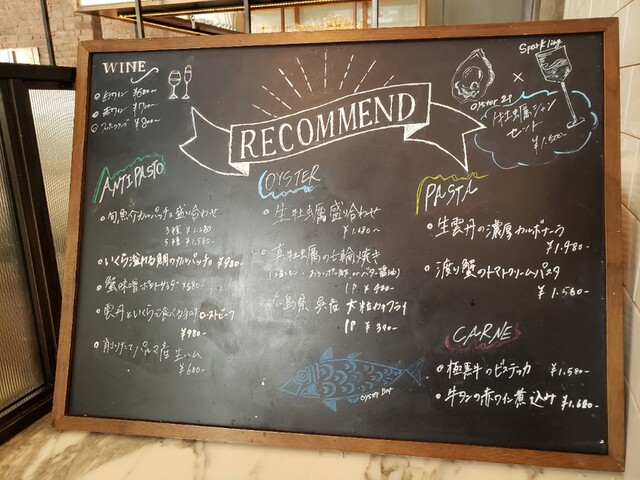 WINE
白ワイン ¥600〜
赤ワイン ¥700〜
¥800〜
RECOMMEND
Sparkling
×
Oyster 2P
生牡蠣×シャン
セット
¥1,500-
ANTIPASTO
・旬魚介カルパッチョ盛り合わせ
3種 ¥1,280
5種 ¥1,580-
・いくら溢れる鯛のカルパッチョ ¥980-
・蟹味噌ポテトサラダ ¥580-
・雲丹といくらと食べる ローストビーフ
¥980-
・削りたてパルマ産生ハム
¥680-
OYSTER
・生牡蠣盛り合わせ
¥1,680〜
・真牡蠣の七輪焼き
1P ¥480-
・広島県呉産 大粒カキフライ
1P ¥390-
OYSTER BAR
PASTA
・生雲丹の濃厚カルボナーラ
¥1,980-
・渡り蟹のトマトクリームパスタ
¥1,580-
CARNE
・極黒牛のビステッカ ¥1,580-
・牛タンの赤ワイン煮込み ¥1,680-